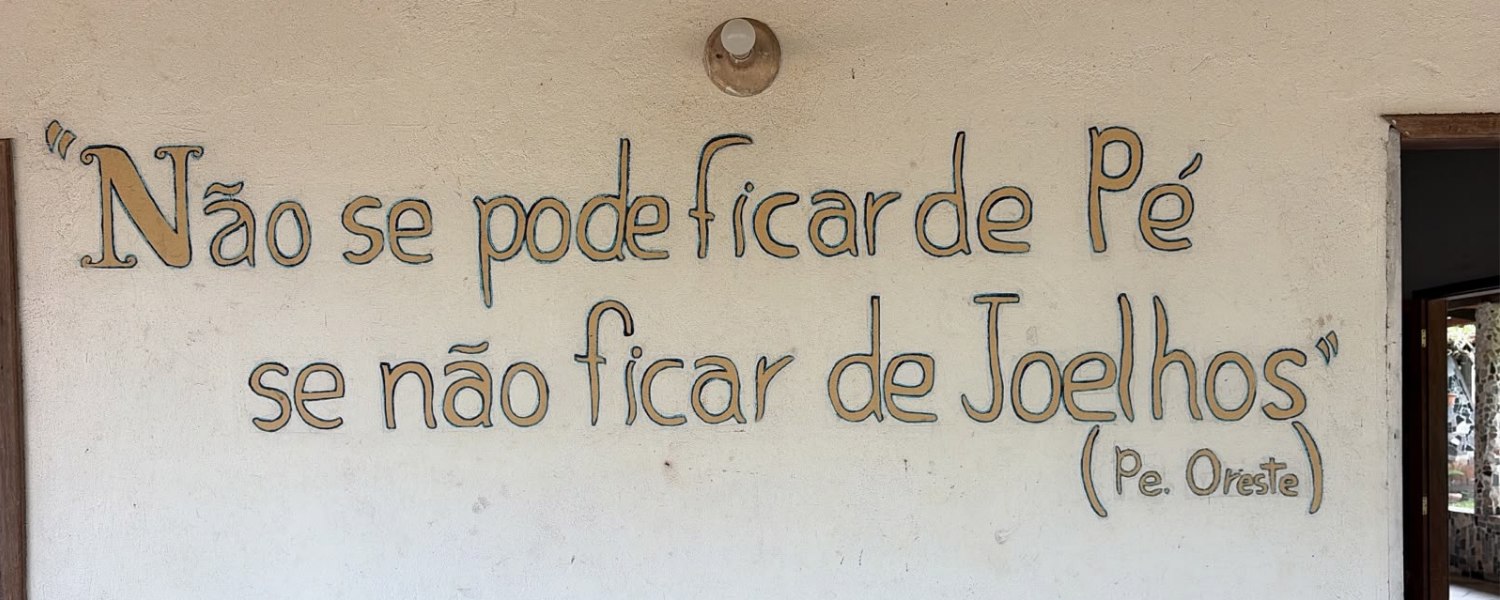 "Não se pode ficar de Pé
se não ficar de Joelhos"
(Pe. Oreste)